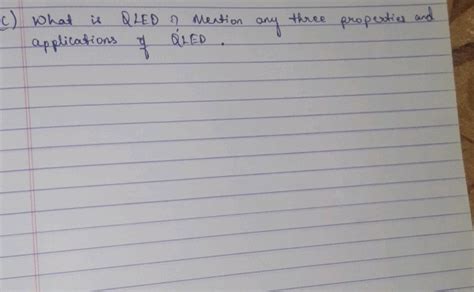 c) What is QLED ? Mention any three properties and
applications of QLED .